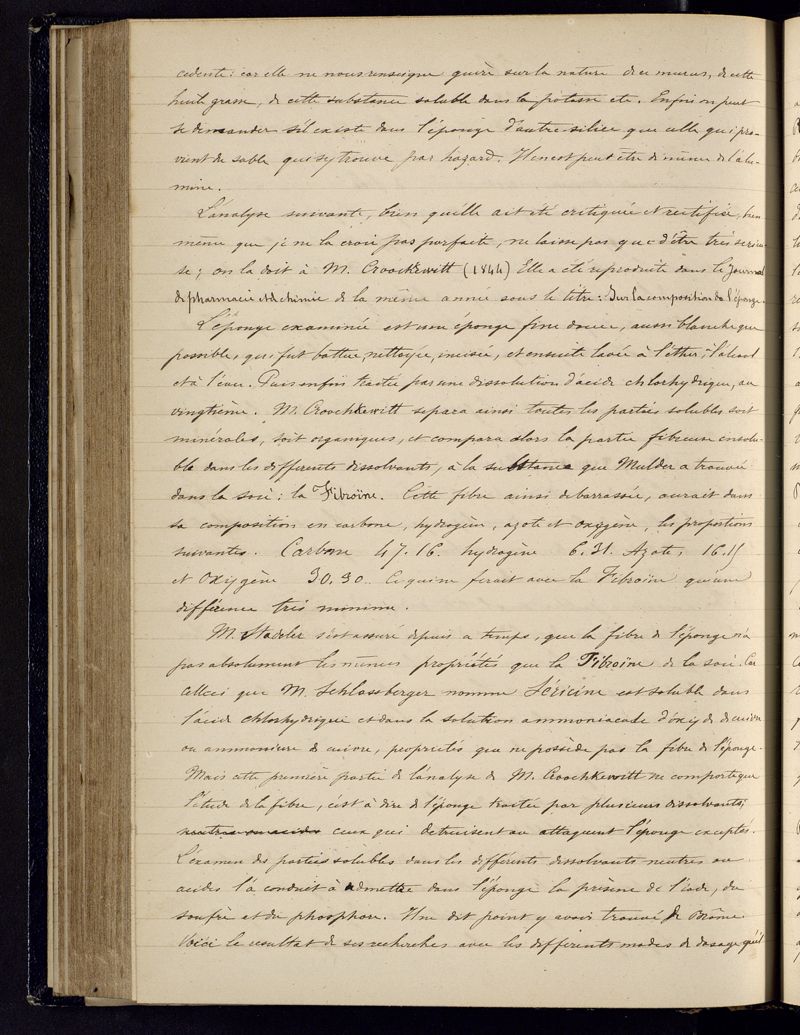 cedente: car elle ne nous renseigne guère sur la nature de ce mucus, de cette
huile grasse, de cette substance soluble dans la potasse etc. Enfin on peut
se demander s'il existe dans l'éponge d'autre silice que celle qui pro-
vient du sable qui s'y trouve par hazard. Il en est peut être de même de l'alu-
mine.
L'analyse suivante, bien qu'elle ait été critiquée et rectifiée, bien
même que je ne la croie pas parfaite, ne laisse pas que d'être très serieu-
se; on la doit à M. Croockewitt (1844) Elle a été reproduite dans le Journal
de pharmacie et chimie de la même année sous le titre: Sur la composition de l'éponge.
L'éponge examinée est une éponge fine douce, aussi blanche que
possible, qui fut battue, nettoyée, incisée, et ensuite lavée à l'éther, à l'alcool
et à l'eau. Puis enfin traitée par une dissolution d'acide chlorhydrique, au
vingtième. M. Croockewitt separa ainsi toutes les parties solubles soit
minérales, soit organiques, et compara alors la partie fibreuse insolu-
ble dans les differents dissolvants, à la substance que Mulder a trouvée
dans la soie: la Fibroïne. Cette fibre ainsi debarrassée, aurait dans
sa composition en carbone, hydrogène, azote et oxygène, les proportions
suivantes. Carbone 47.16. hydrogène 6.31. Azote, 16.15
et Oxigène 30.90. Ce qui ne ferait avec la Fibroïne qu'une
différence très minime.
M. Stadeler s'est assuré depuis ce temps, que la fibre de l'éponge n'a
pas absolument les mêmes propriétés que la Fibroïne de la soie. Car
celle ci que M. Schlossberger nomme Séricine est soluble dans
l'acide chlorhydrique et dans la solution ammoniacale d'oxyde de cuivre
ou ammoniure de cuivre, propriétés que ne possède pas la fibre de l'éponge.
Mais cette première partie de l'analyse de M. Croockewitt ne comporte que
l'étude de la fibre, c'est à dire de l'éponge traitée par plusieurs dissolvants;
neutres ou acides ceux qui detruisent ou attaquent l'éponge exceptés.
L'examen des parties solubles dans les différents dissolvants neutres ou
acides l'a conduit à admettre dans l'éponge la présence de l'iode, du
soufre et du phosphore. Il ne dit point y avoir trouvé de Brôme
Voici le resultat de ses recherches avec les differents modes de dosage qu'il